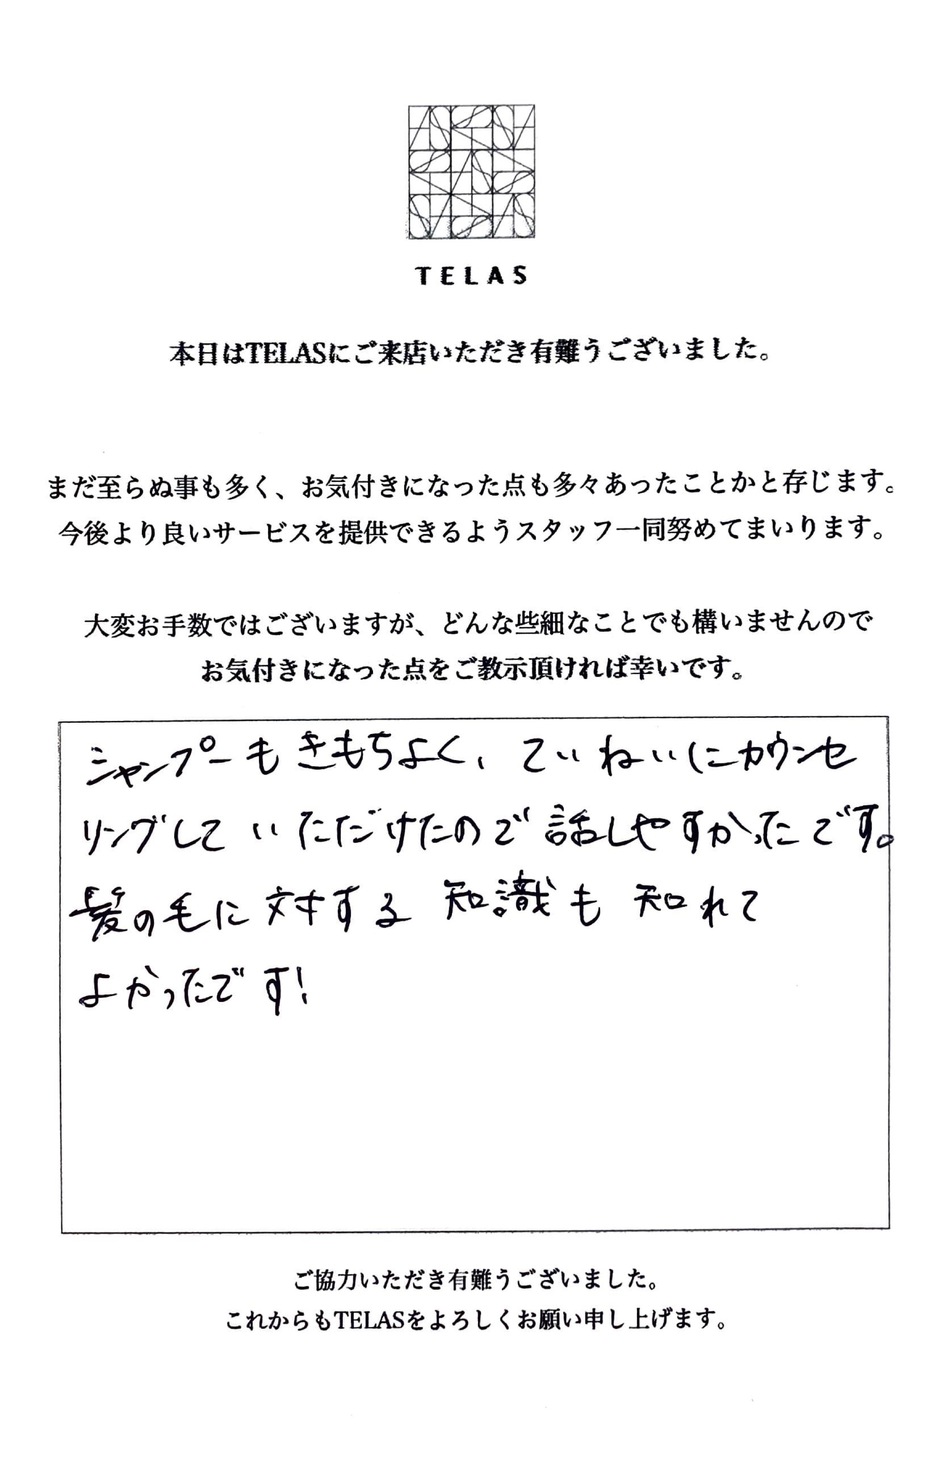 TELAS
本日はTELASにご来店いただき有難うございました。
まだ至らぬ事も多く、お気付きになった点も多々あったことかと存じます。
今後より良いサービスを提供できるようスタッフ一同努めてまいります。
大変お手数ではございますが、どんな些細なことでも構いませんので
お気付きになった点をご教示頂ければ幸いです。
シャンプーもきもちよく、ていねいにカウンセ
リングしていただけたので話しやすかったです。
髪の毛に対する知識も知れて
よかったです!
ご協力いただき有難うございました。
これからもTELASをよろしくお願い申し上げます。